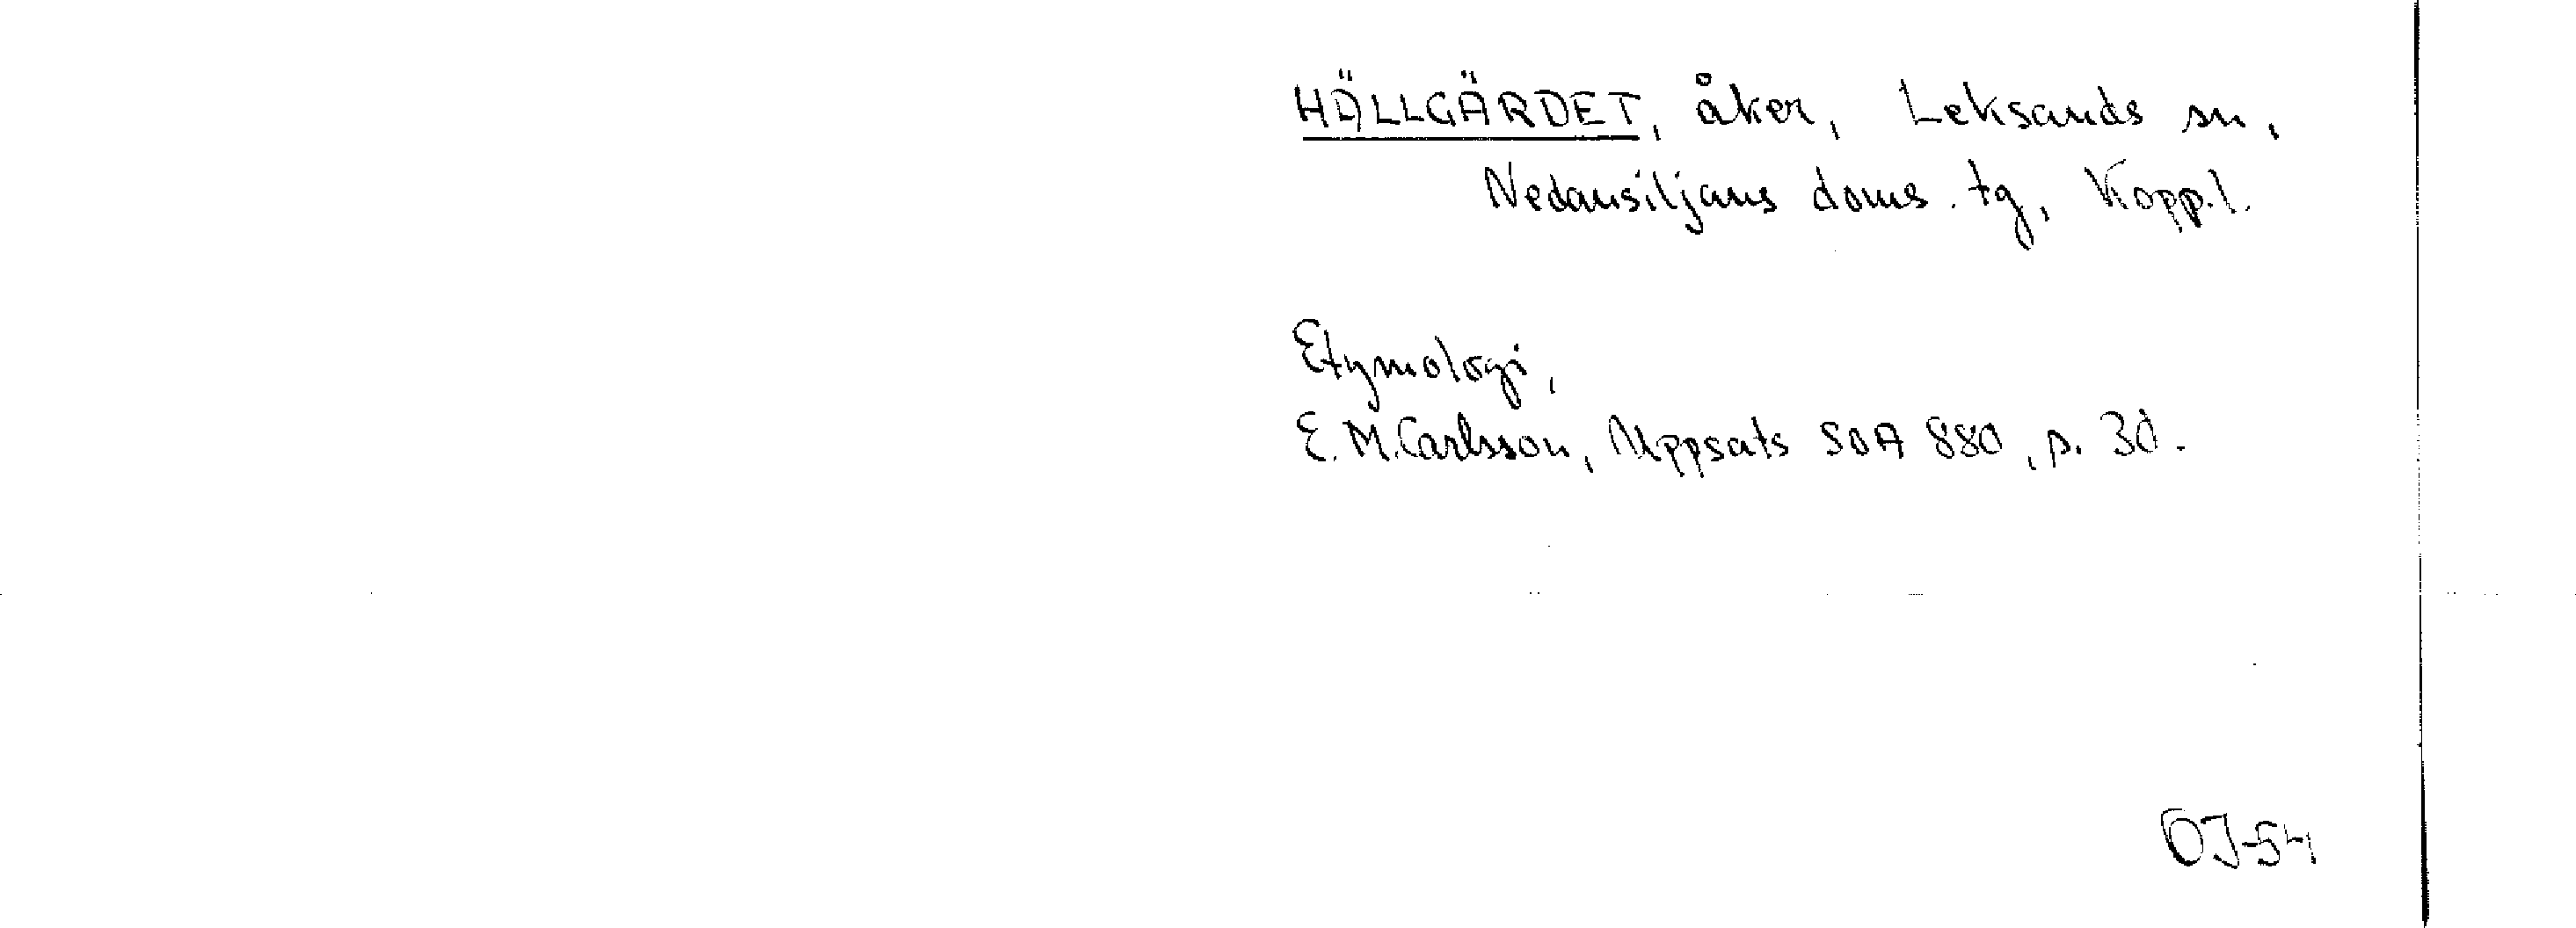 HÄLLGÄRDET, åker, Leksands sn,
Nedansiljans doms. tg, Kopp.l.
Etymologi,
E. M. Carlsson, Uppsats SOA 880, s. 30.
OJ-54